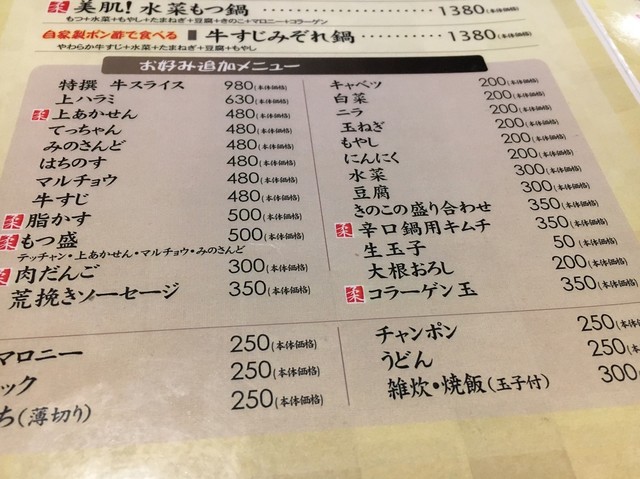 柔 美肌!水菜もつ鍋 1380(本体価格)
もつ+水菜+もやし+たまねぎ+豆腐+きのこ+マロニー+コラーゲン
自家製ポン酢で食べる 牛すじみぞれ鍋 1380(本体価格)
やわらか牛すじ+水菜+たまねぎ+豆腐+もやし
お好み追加メニュー
特撰 牛スライス 980(本体価格)
上ハラミ 630(本体価格)
柔 上あかせん 480(本体価格)
てっちゃん 480(本体価格)
みのさんど 480(本体価格)
はちのす 480(本体価格)
マルチョウ 480(本体価格)
牛すじ 480(本体価格)
柔 脂かす 500(本体価格)
柔 もつ盛 500(本体価格)
テッチャン・上あかせん・マルチョウ・みのさんど
柔 肉だんご 300(本体価格)
荒挽きソーセージ 350(本体価格)
キャベツ 200(本体価格)
白菜 200(本体価格)
ニラ 200(本体価格)
玉ねぎ 200(本体価格)
もやし 200(本体価格)
にんにく 200(本体価格)
水菜 300(本体価格)
豆腐 300(本体価格)
きのこの盛り合わせ 350(本体価格)
柔 辛口鍋用キムチ 350(本体価格)
生玉子 50(本体価格)
大根おろし 200(本体価格)
柔 コラーゲン玉 350(本体価格)
マロニー 250(本体価格)
ック 250(本体価格)
ち(薄切り) 250(本体価格)
チャンポン 250(本体価格)
うどん 250(本体
雑炊・焼飯(玉子付) 300(本